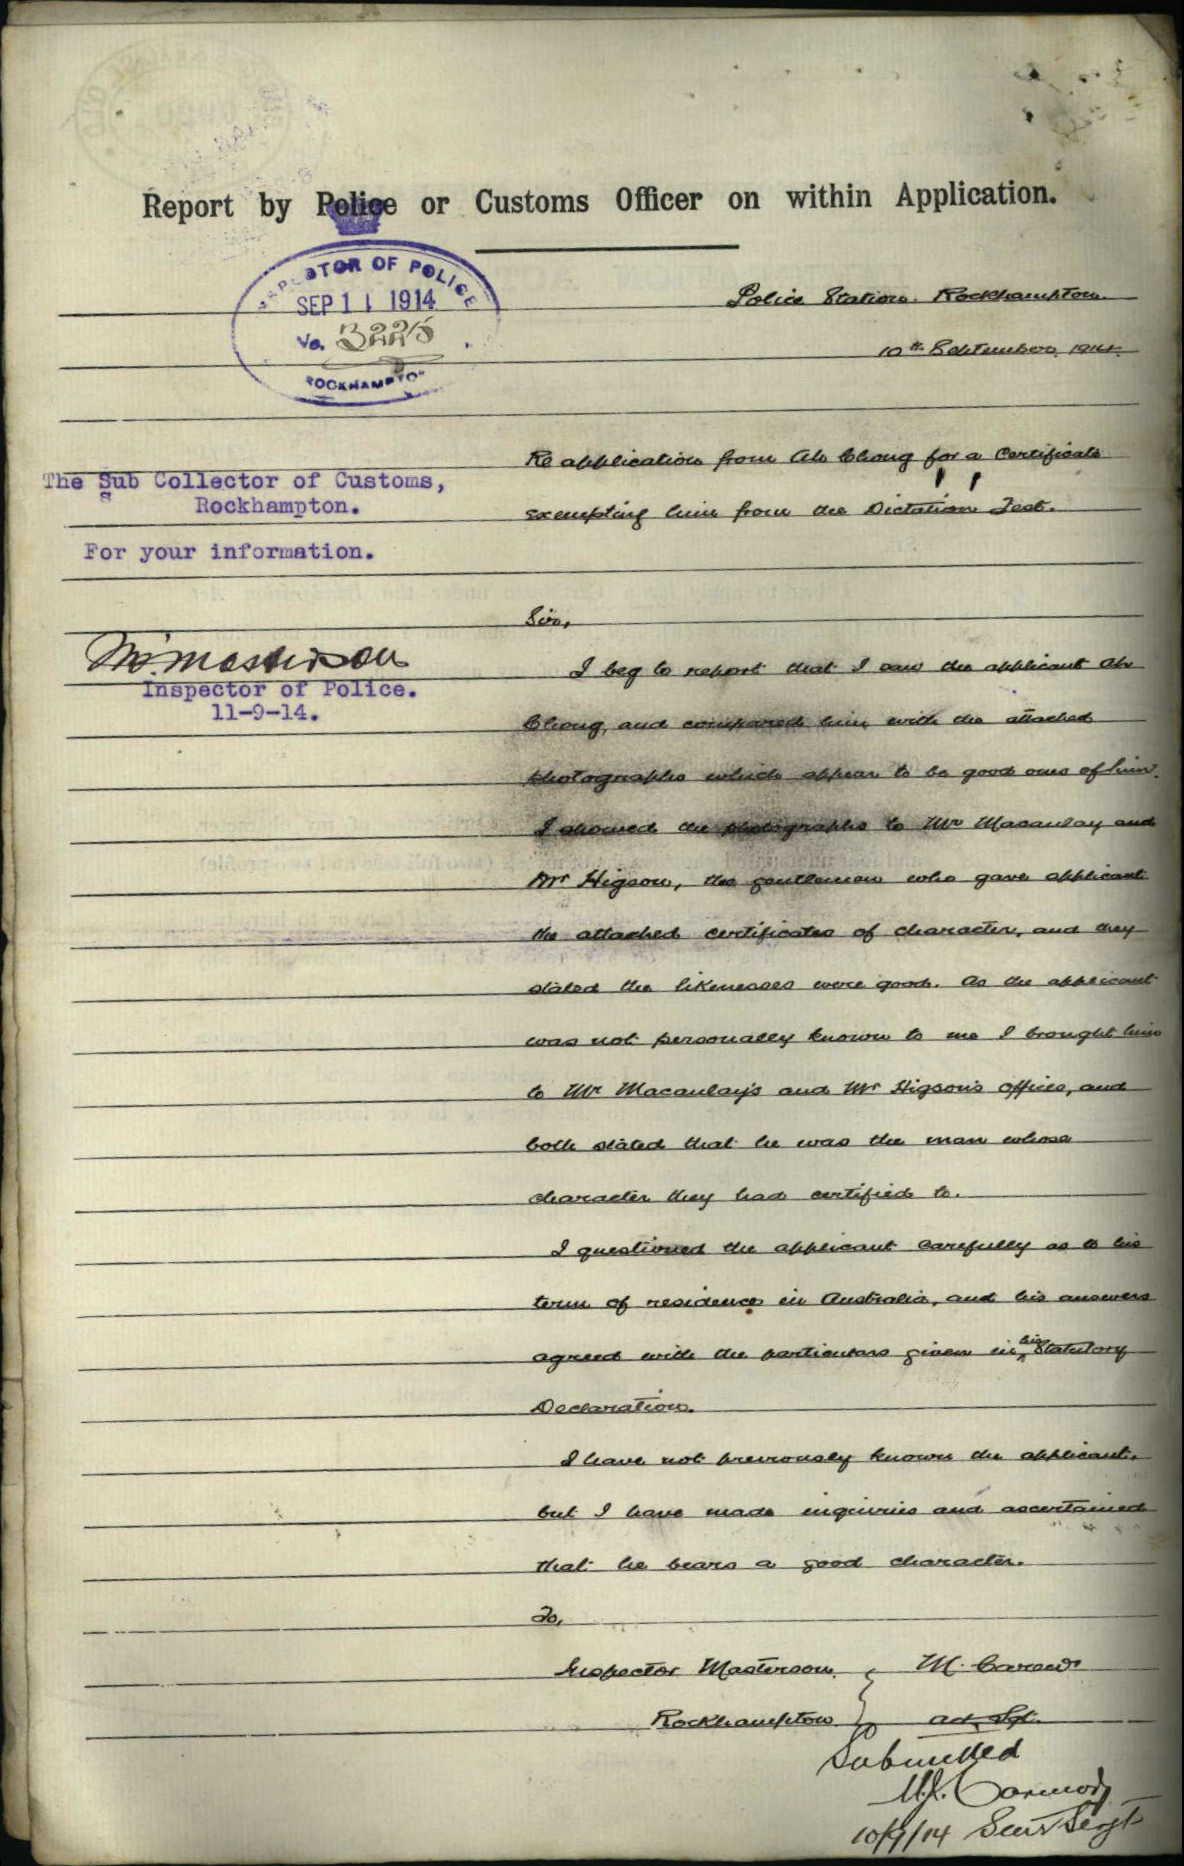 Report by Police or Customs Officer on within Application.
INSPECTOR OF POLICE
SEP 11 1914
No. 3225
ROCKHAMPTON
Police Station. Rockhampton.
10th September, 1914.
Re application from Ah Chong for a Certificate
exempting him from the Dictation Test.
The Sub Collector of Customs,
Rockhampton.
For your information.
M. Masterson
Inspector of Police.
11-9-14.
Sir,
I beg to report that I saw the applicant Ah
Chong, and compared him with the attached
photographs which appear to be good ones of him.
I showed the photographs to Mr Macaulay and
Mr Higson, the gentlemen who gave applicant
the attached certificates of character, and they
stated the likenesses were good. As the applicant
was not personally known to me I brought him
to Mr Macaulay's and Mr Higson's offices, and
both stated that he was the man whose
character they had certified to.
I questioned the applicant carefully as to his
term of residence in Australia, and his answers
agreed with the particulars given in his Statutory
Declaration.
I have not previously known the applicant,
but I have made inquiries and ascertained
that he bears a good character.
To,
Inspector Masterson. M.
Rockhampton Act. Sgt.
Submitted
M.J. Carmody
10/9/14 Senr Sergt